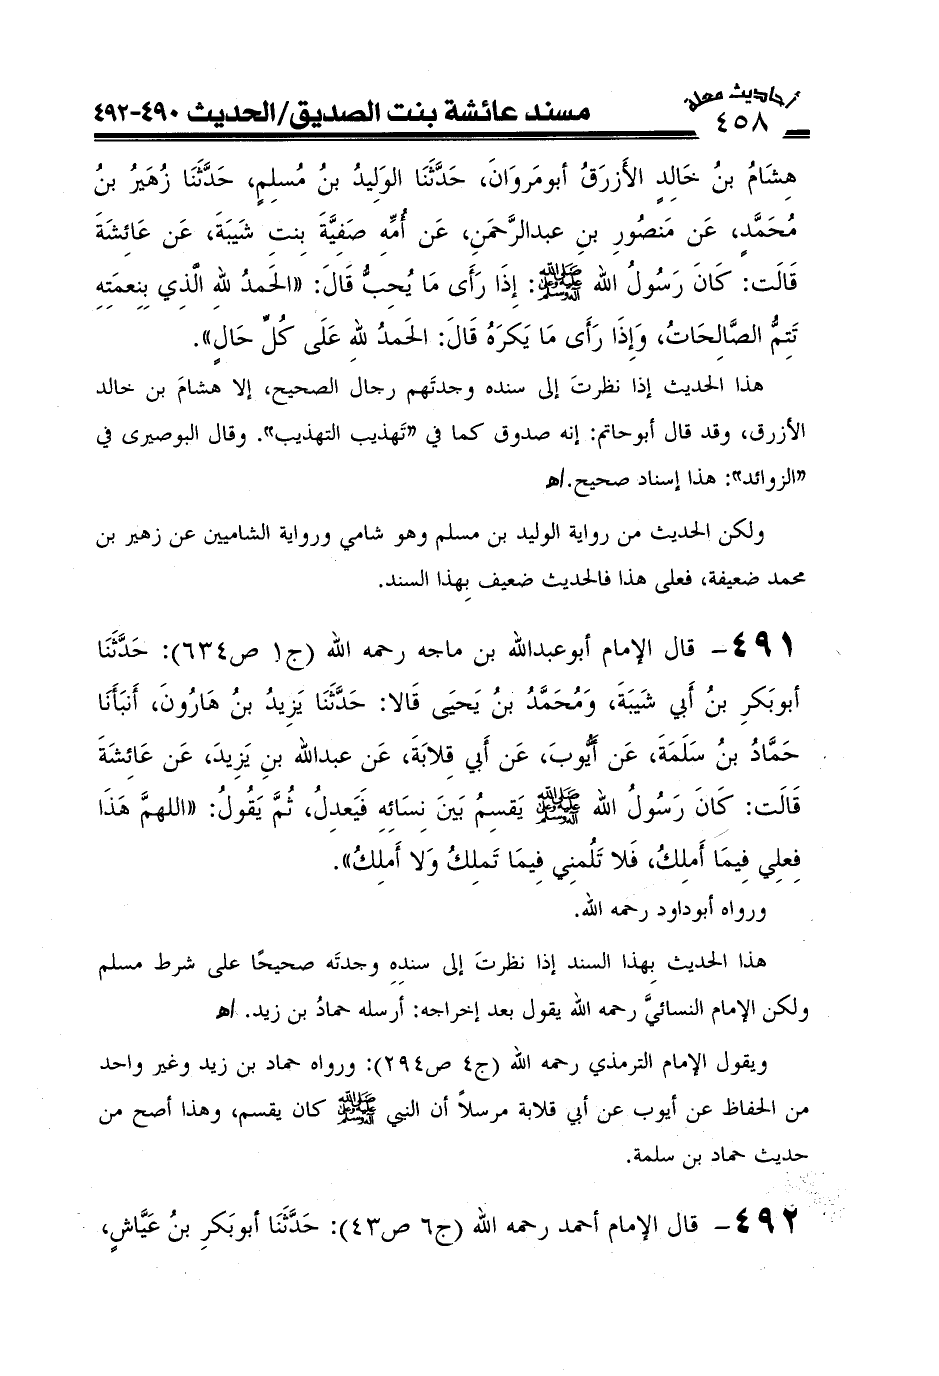 أحاديث معلة
٤٥٨
مسند عائشة بنت الصديق/الحديث ٤٩٠-٤٩٢
هِشَامُ بنُ خَالِدٍ الأَزرَقُ أبومَروَانَ، حَدَّثَنَا الوَلِيدُ بنُ مُسلِمٍ، حَدَّثَنَا زُهَيرُ بنُ
مُحَمَّدٍ، عَن مَنصُورِ بنِ عبدالرَّحمَنِ، عَن أُمِّهِ صَفِيَّةَ بِنتِ شَيبَةَ، عَن عَائِشَةَ
قَالَت: كَانَ رَسُولُ الله ﷺ: إِذَا رَأَى مَا يُحِبُّ قَالَ: «الحَمدُ للهِ الَّذي بِنِعمَتِهِ
تَتِمُّ الصَّالِحَاتُ، وَإِذَا رَأَى مَا يَكرَهُ قَالَ: الحَمدُ للهِ عَلَى كُلِّ حَالٍ».
هذا الحديث إذا نظرتَ إلى سنده وجدتَهم رجال الصحيح، إلا هشامَ بن خالد
الأزرق، وقد قال أبوحاتم: إنه صدوق كما في «تَهذيب التهذيب». وقال البوصيرى في
«الزوائد»: هذا إسناد صحيح.اهـ
ولكن الحديث من رواية الوليد بن مسلم وهو شامي ورواية الشاميين عن زهير بن
محمد ضعيفة، فعلى هذا فالحديث ضعيف بِهذا السند.
٤٩١- قال الإمام أبوعبدالله بن ماجه رحمه الله (ج١ ص٦٣٤): حَدَّثَنَا
أبوبَكرِ بنُ أَبي شَيبَةَ، وَمُحَمَّدُ بنُ يَحيَى قَالا: حَدَّثَنَا يَزِيدُ بنُ هَارُونَ، أَنبَأَنَا
حَمَّادُ بنُ سَلَمَةَ، عَن أَيُّوبَ، عَن أَبي قِلابَةَ، عَن عبدالله بنِ يَزِيدَ، عَن عَائِشَةَ
قَالَت: كَانَ رَسُولُ الله ﷺ يَقسِمُ بَينَ نِسَائِهِ فَيَعدِلُ، ثُمَّ يَقُولُ: «اللهمَّ هَذَا
فِعلِي فِيمَا أَملِكُ، فَلا تَلُمنِي فِيمَا تَملِكُ وَلا أَملِكُ».
ورواه أبوداود رحمه الله.
هذا الحديث بِهذا السند إذا نظرتَ إلى سندِهِ وجدتَه صحيحًا على شرط مسلم
ولكن الإمام النسائيَّ رحمه الله يقول بعد إخراجه: أرسله حمادُ بن زيد. اهـ
ويقول الإمام الترمذي رحمه الله (ج٤ ص٢٩٤): ورواه حماد بن زيد وغير واحد
من الحفاظ عن أيوب عن أبي قلابة مرسلاً أن النبي ﷺ كان يقسم، وهذا أصح من
حديث حماد بن سلمة.
٤٩٢- قال الإمام أحمد رحمه الله (ج٦ ص٤٣): حَدَّثَنَا أبوبَكرِ بنُ عَيَّاشٍ،